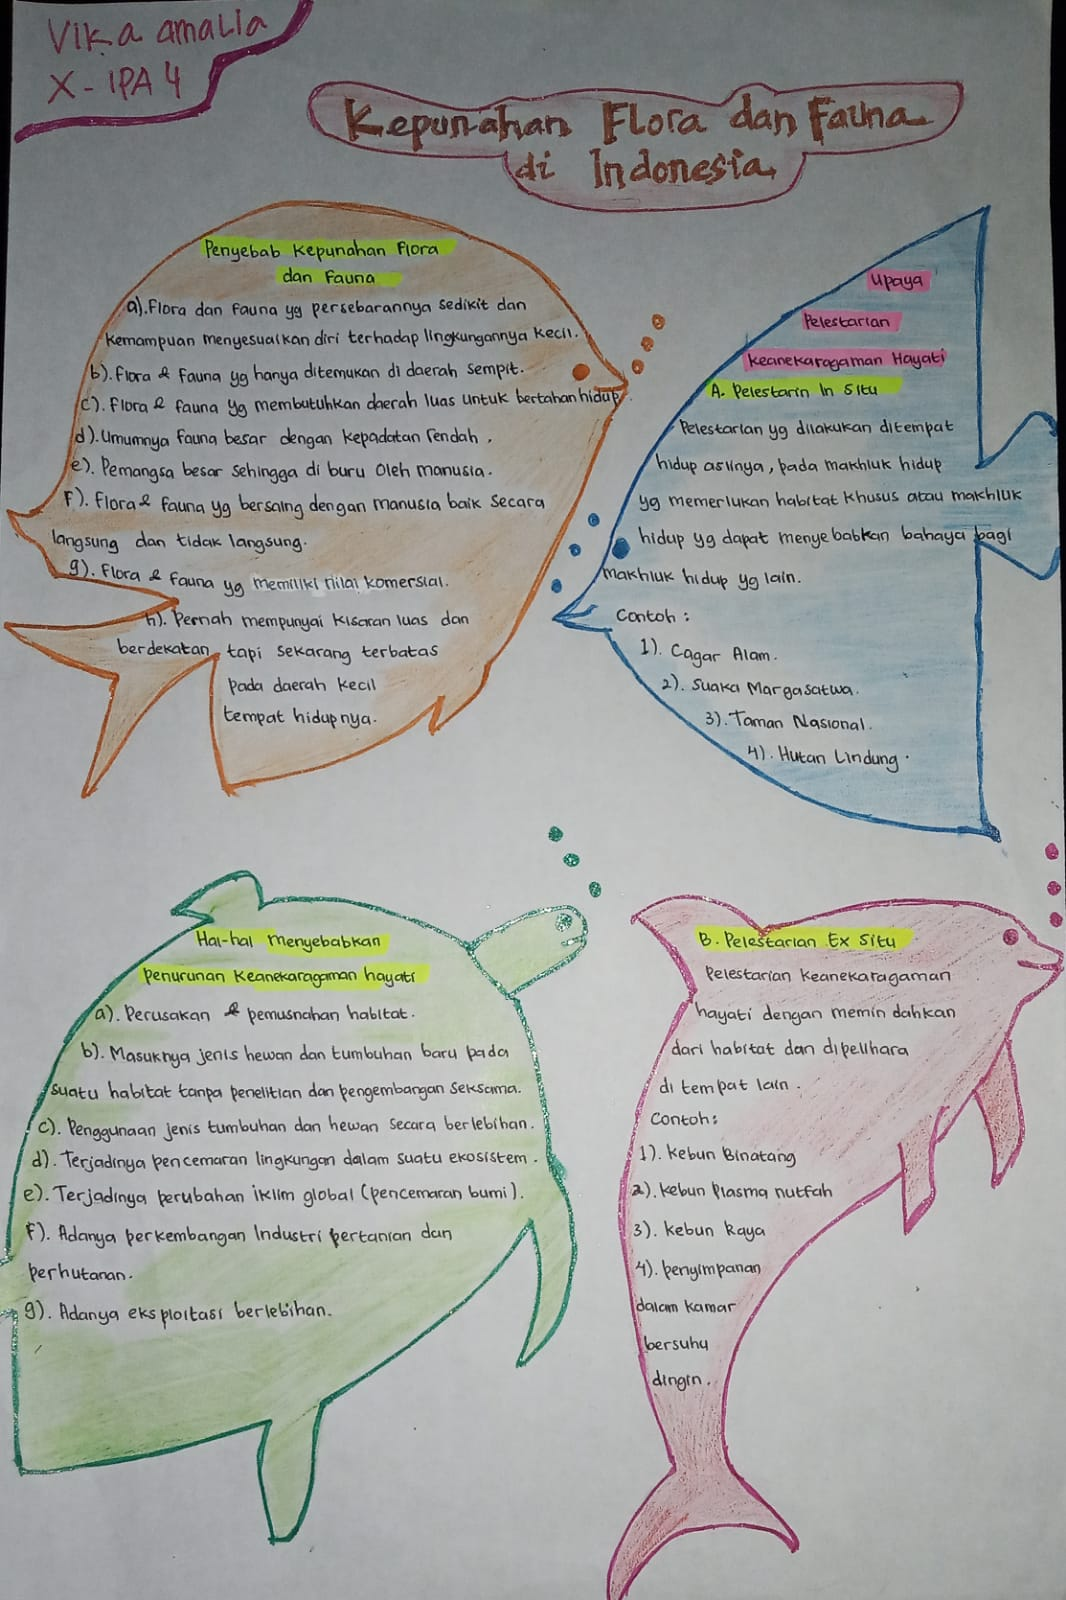 Vika amalia
X - IPA 4
Kepunahan Flora dan Fauna
di Indonesia
Penyebab Kepunahan Flora
dan Fauna
a). Flora dan Fauna yg persebarannya sedikit dan
kemampuan menyesuaikan diri terhadap lingkungannya kecil.
b). Flora & Fauna yg hanya ditemukan di daerah sempit.
c). Flora & Fauna yg membutuhkan daerah luas untuk bertahan hidup.
d). Umumnya Fauna besar dengan kepadatan rendah.
e). Pemangsa besar sehingga di buru oleh manusia.
F). Flora & Fauna yg bersaing dengan manusia baik secara
langsung dan tidak langsung.
g). Flora & Fauna yg memiliki nilai komersial.
h). Pernah mempunyai kisaran luas dan
berdekatan tapi sekarang terbatas
pada daerah kecil
tempat hidupnya.
Upaya
Pelestarian
Keanekaragaman Hayati
A. Pelestarin In Situ
Pelestarian yg dilakukan ditempat
hidup aslinya, pada makhluk hidup
yg memerlukan habitat khusus atau makhluk
hidup yg dapat menyebabkan bahaya bagi
makhluk hidup yg lain.
Contoh :
1). Cagar Alam.
2). Suaka Margasatwa.
3). Taman Nasional.
4). Hutan Lindung.
Hal-hal menyebabkan
penurunan Keanekaragaman hayati
a). Perusakan & pemusnahan habitat.
b). Masuknya jenis hewan dan tumbuhan baru pada
suatu habitat tanpa penelitian dan pengembangan seksama.
c). Penggunaan jenis tumbuhan dan hewan secara berlebihan.
d). Terjadinya pencemaran lingkungan dalam suatu ekosistem.
e). Terjadinya perubahan iklim global (pencemaran bumi).
F). Adanya perkembangan Industri pertanian dan
perhutanan.
g). Adanya eksploitasi berlebihan.
B. Pelestarian Ex Situ
Pelestarian keanekaragaman
hayati dengan memin dahkan
dari habitat dan dipelihara
di tempat lain.
Contoh:
1). Kebun Binatang
2). Kebun Plasma nutfah
3). Kebun Raya
4). penyimpanan
dalam kamar
bersuhu
dingin.